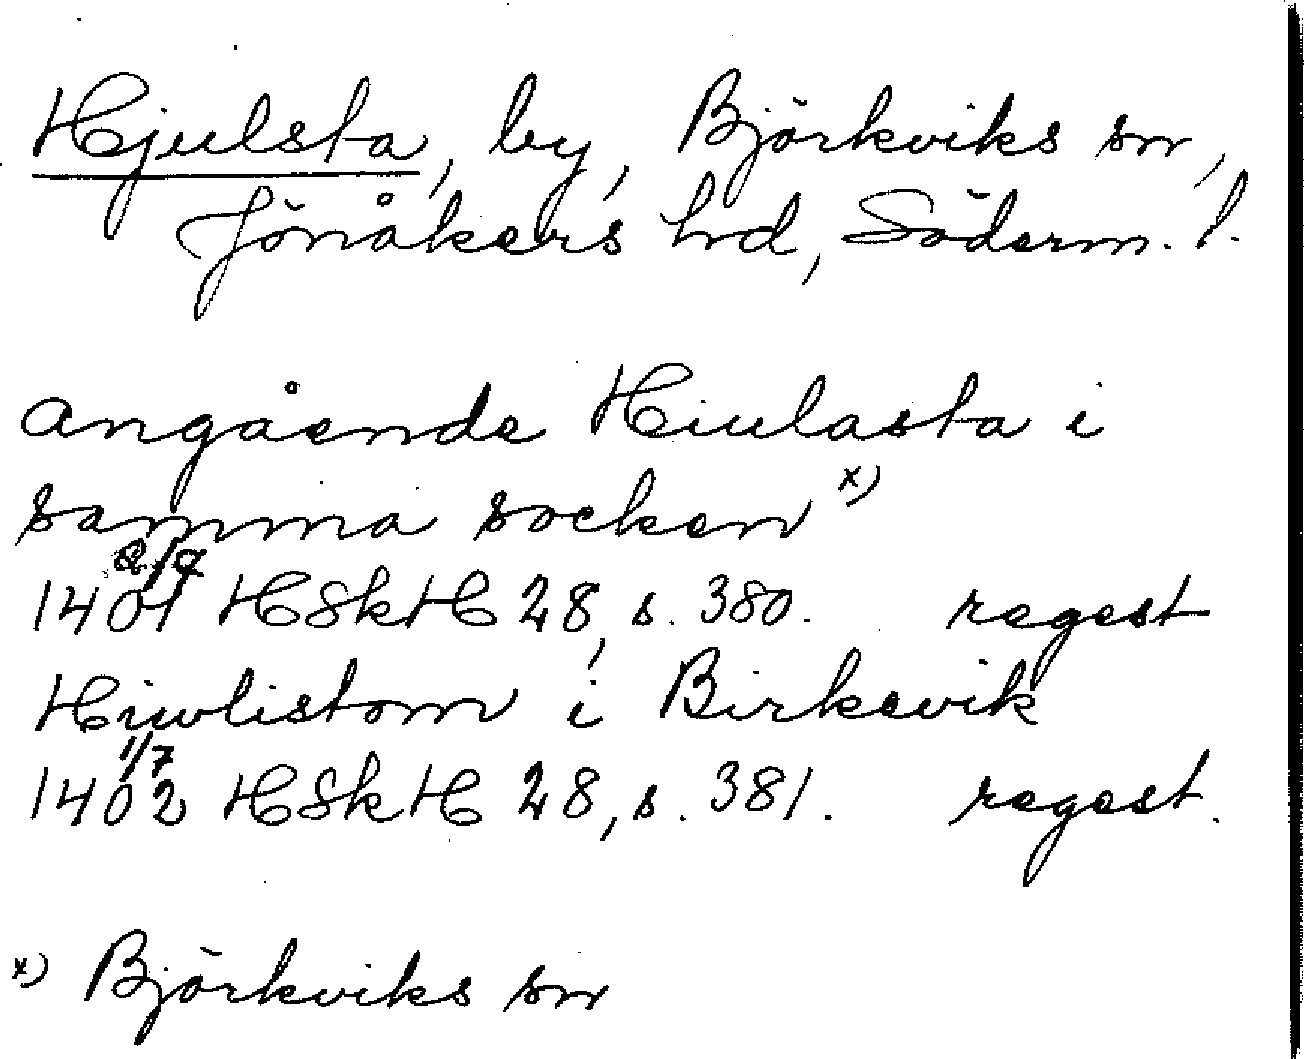 Hjulsta, by, Björkviks sn,
Jönåkers hd, Söderm. l.
angående Hiulasta i
samma socken x)
1401 HSkH 28, s. 380. regest
Hiwlistom i Birkevik
1/7
1402 HSkH 28, s. 381. regest.
x) Björkviks sn